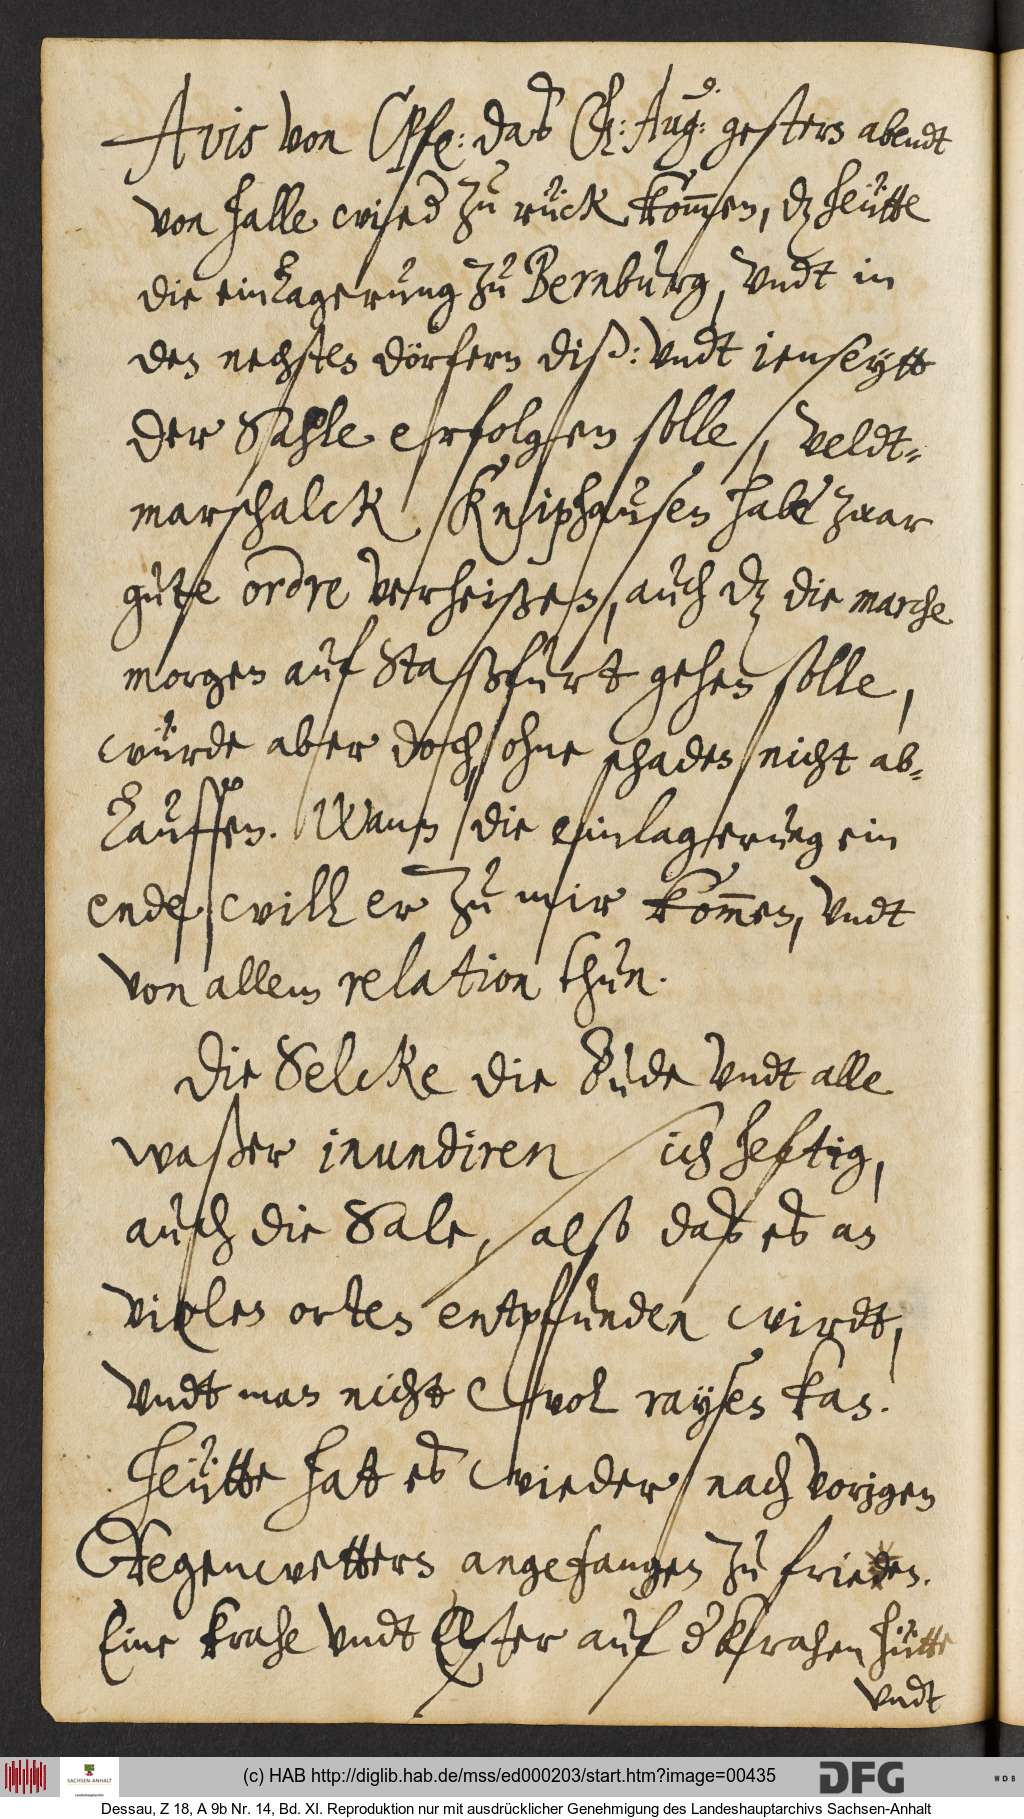 Avis von Cpfe: das Ch: Aug: gesters abendt
von Halle wied zu rück kom̅en, dz heütte
die einlagerung zu Bernburg, vndt in
den nechsten dörfern diß: vndt ienseytt
der Sahle erfolgen solle, Veldt-
marschalck Kniphausen habe zwar
gute ordre verheißen, auch dz die marche
morgen auf Staßfurt gehen solle,
würde aber doch ohne schaden nicht ab-
lauffen. Wann die einlagerung ein
ende, will er zu mir kom̅en, vndt
von allem relation thun.
Die Selcke die Bude vndt alle
waßer inundiren sich heftig,
auch die Sale, also daß es an
vielen orten entpfunden wirdt,
vndt man nicht wol raysen kan.
Heütte hatt es wieder nach vorigen
Regenwetters angefangen zu frieden.
Eine krahe vndt Elster auf dkrahen hütte
vndt
(c) HAB http://diglib.hab.de/mss/ed000203/start.htm?image=00435
SACHSEN-ANHALT
DFG
WDB
Dessau, Z 18, A 9b Nr. 14, Bd. XI. Reproduktion nur mit ausdrücklicher Genehmigung des Landeshauptarchivs Sachsen-Anhalt